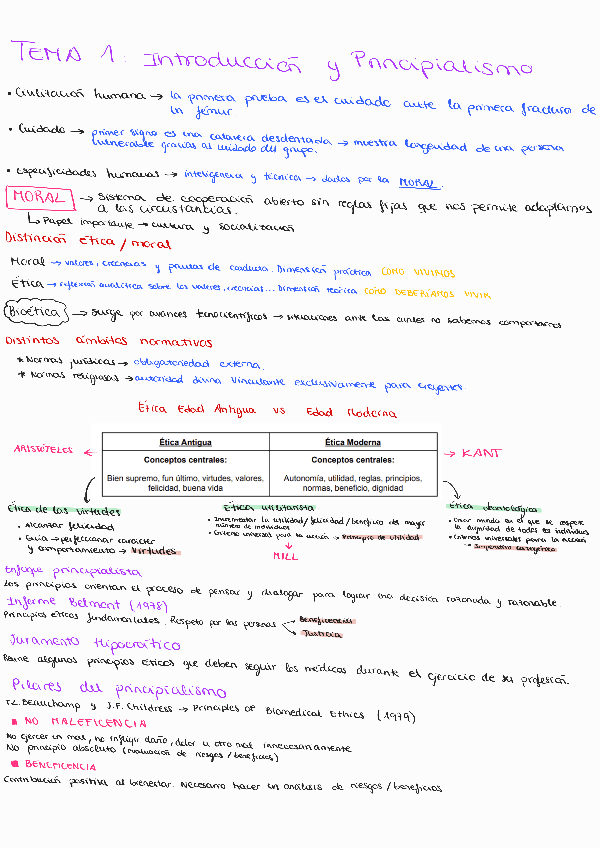 TEMA 1: Introducción y Principialismo
• Civilización humana → la primera prueba es el cuidado ante la primera fractura de
un fémur
• Cuidado → primer signo es una calavera desdentada → muestra longevidad de una persona
vulnerable gracias al cuidado del grupo.
• Especificidades humanas → inteligencia y técnica → dadas por la MORAL.
MORAL → Sistema de cooperación abierto sin reglas fijas que nos permite adaptarnos
a las circustancias.
↳ Papel importante → cultura y socialización
Distinción ética / moral
Moral → valores, creencias y pautas de conducta. Dimensión práctica COMO VIVIMOS
Ética → reflexión analítica sobre los valores, creencias... Dimensión teórica COMO DEBERÍAMOS VIVIR
Bioética → surge por avances tecnocientíficos → situaciones ante las cuales no sabemos comportarnos
Distintos ámbitos normativos
* Normas jurídicas → obligatoriedad externa.
* Normas religiosas → autoridad divina vinculante exclusivamente para creyentes
Ética Edad Antigua vs Edad Moderna
ARISTÓTELES ←
Ética Antigua
Conceptos centrales:
Bien supremo, fun último, virtudes, valores,
felicidad, buena vida
Ética Moderna
Conceptos centrales:
Autonomía, utilidad, reglas, principios,
normas, beneficio, dignidad
→ KANT
Ética de las virtudes
• Alcanzar felicidad
• Guía → perfeccionar carácter
y comportamiento → Virtudes
Ética utilitarista
• Incrementar la utilidad/felicidad/beneficio del mayor
número de individuos
• Criterio universal para la acción → Principio de utilidad
MILL
Ética deontológica
• Crear mundo en el que se respete
la dignidad de todos los individuos
• Criterios universales para la acción
→ Imperativo categórico
Enfoque principialista
Los principios orientan el proceso de pensar y dialogar para lograr una decisión razonada y razonable.
Informe Belmont (1978)
Principios éticos fundamentales. Respeto por las personas
Beneficencia
Justicia
Juramento Hipocrático
Reúne algunos principios éticos que deben seguir los médicos durante el ejercicio de su profesión.
Pilares del principialismo
T.L. Beauchamp y J.F. Childress → Principles of Biomedical Ethics (1979)
■ NO MALEFICENCIA
No ejercer un mal, no infligir daño, dolor u otro mal innecesariamente
No principio absoluto (evaluación de riesgos / beneficios)
■ BENEFICENCIA
Contribución positiva al bienestar. Necesario hacer un análisis de riesgos / beneficios